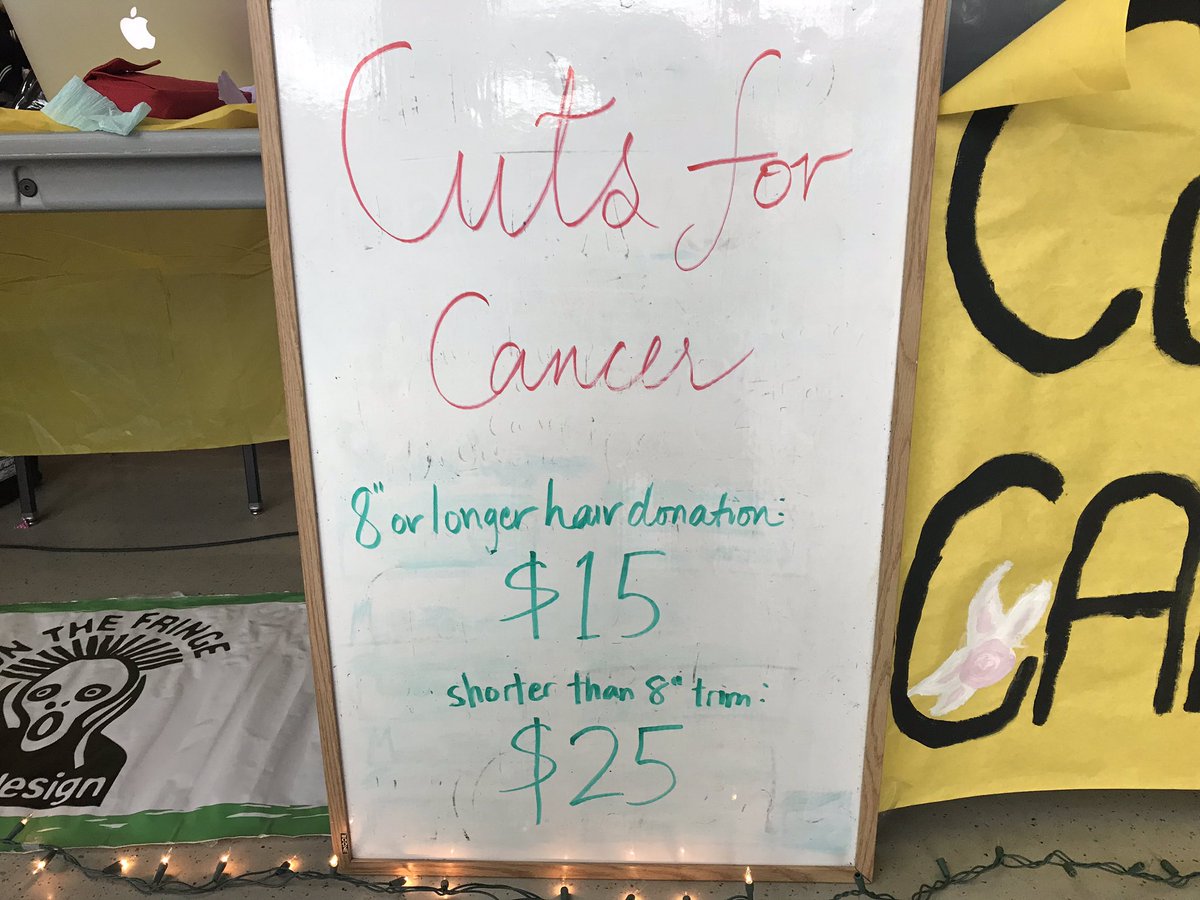 Cuts for
Cancer
8" or longer hair donation:
$15
shorter than 8" trim:
$25
ON THE FRINGE
design
CA